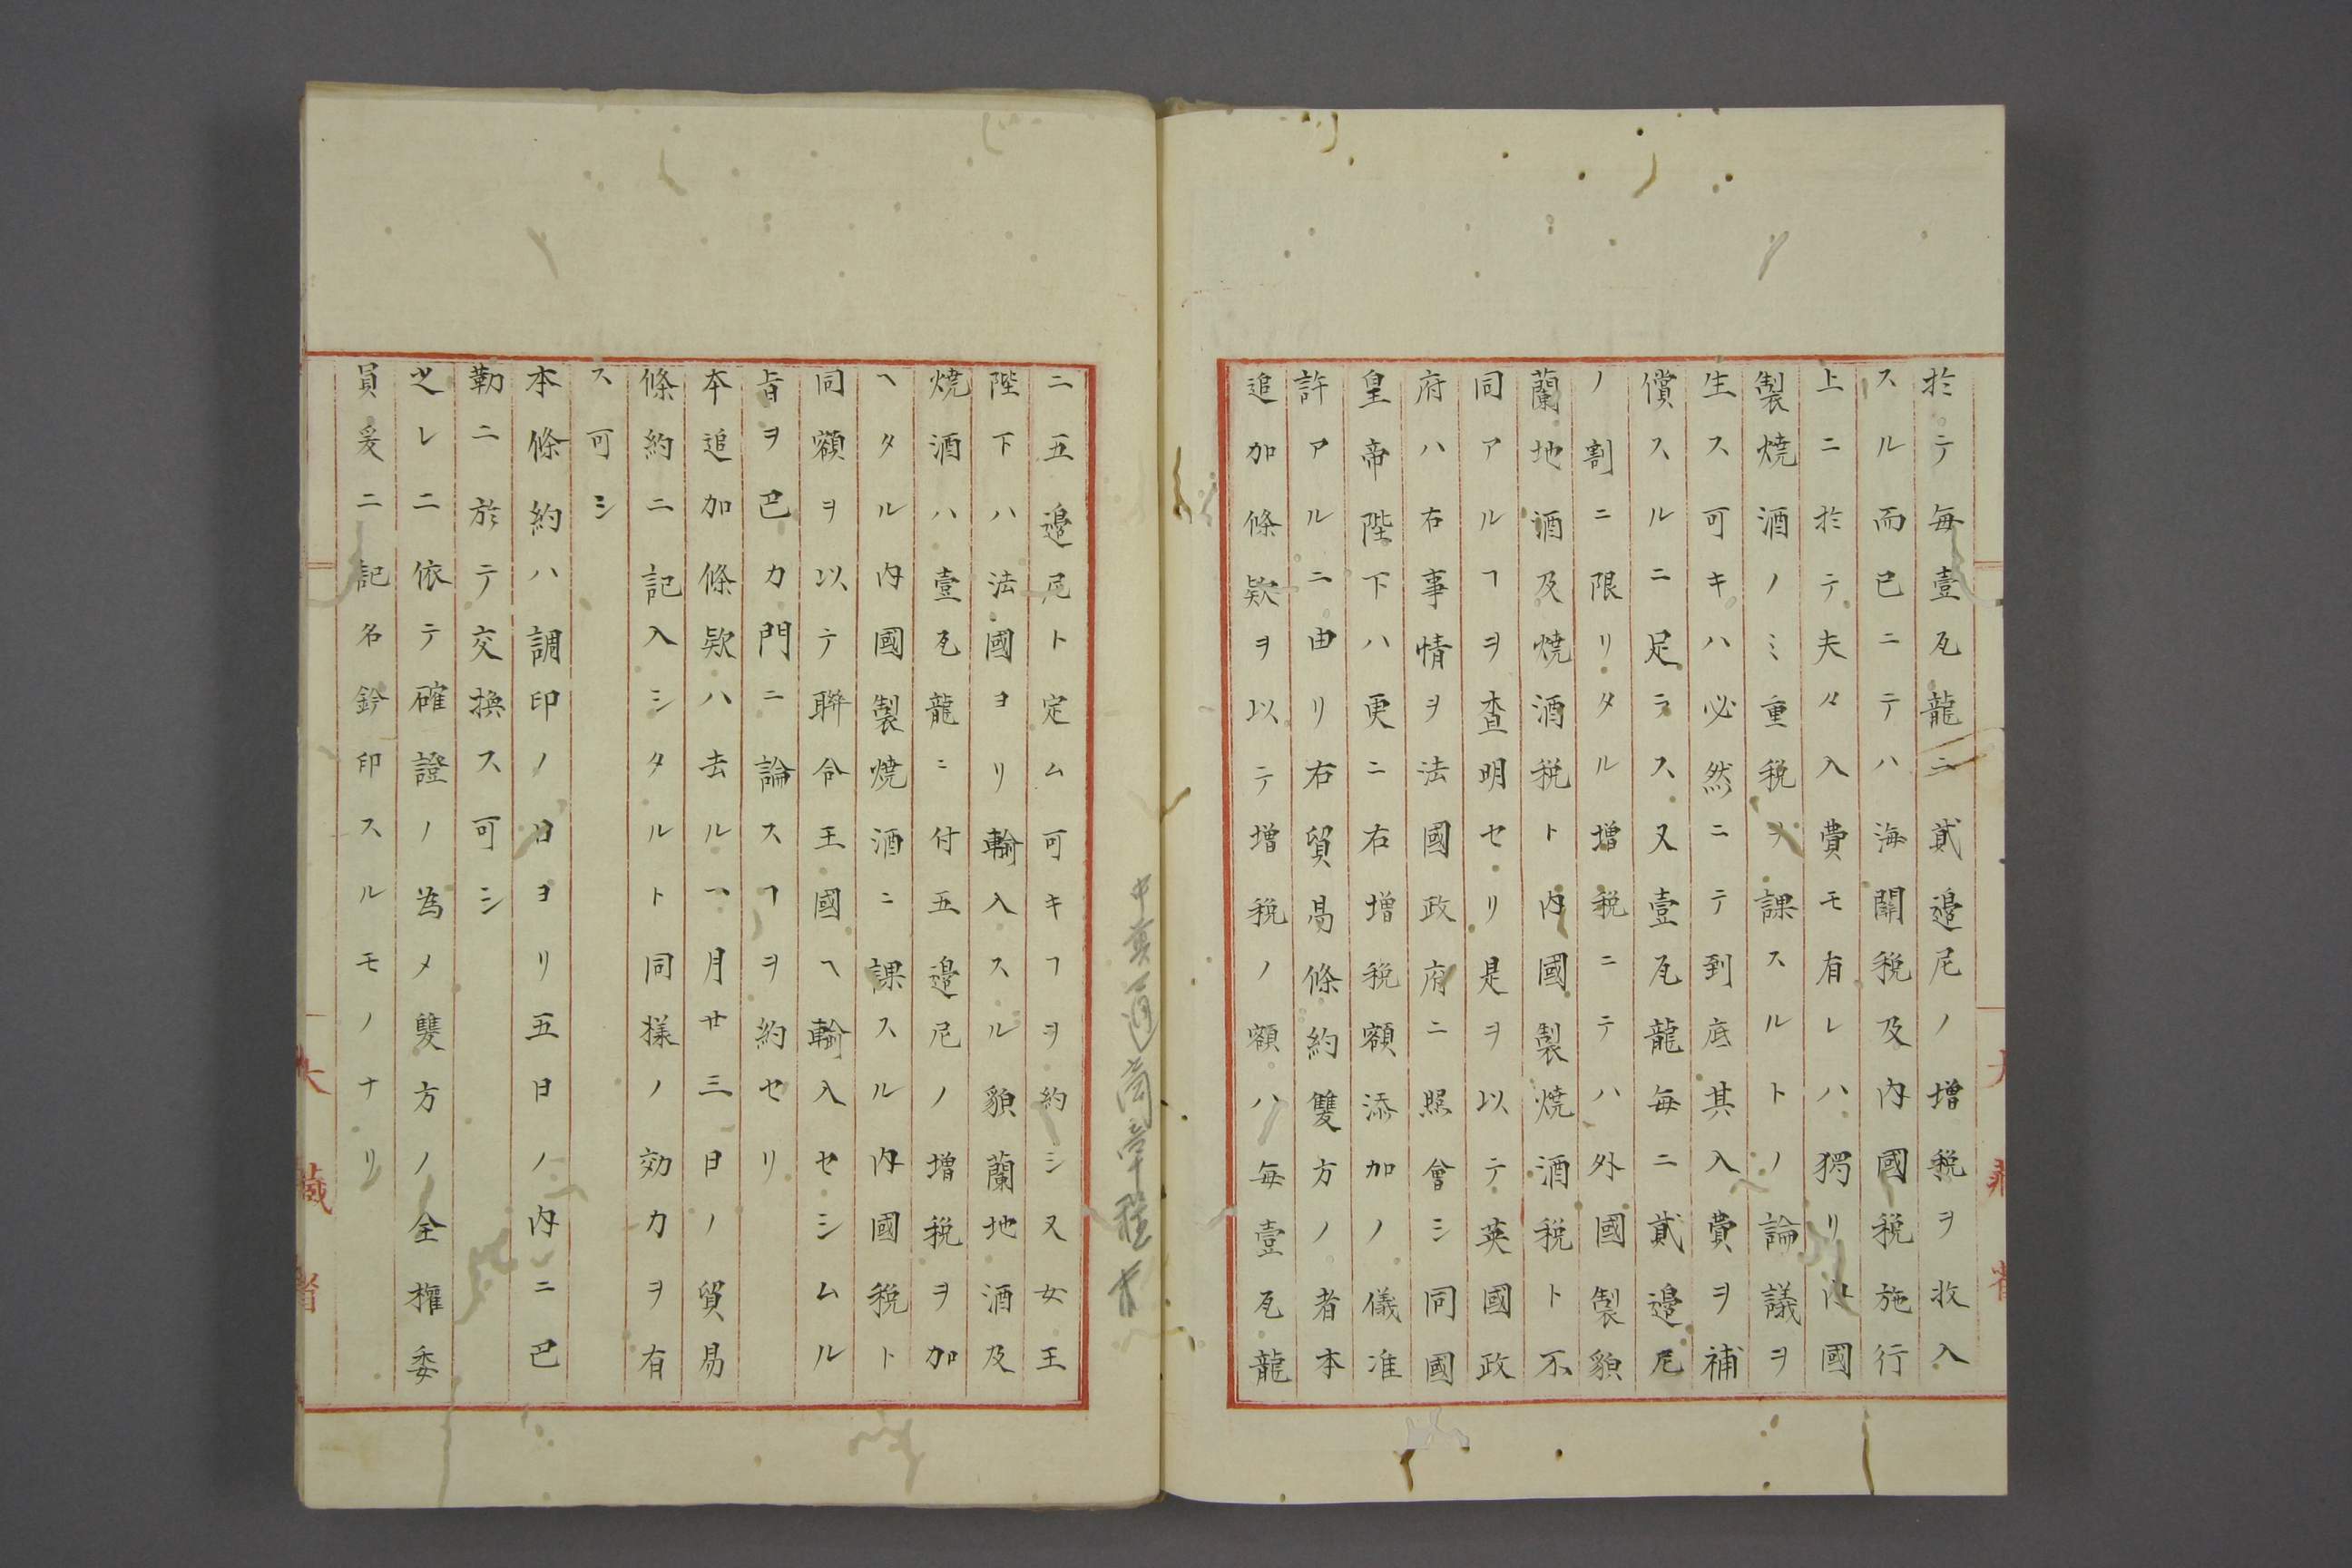 於テ毎壹瓦龍ニ貳邉尼ノ増税ヲ收入
スル而已ニテハ海關税及内國税施行
上ニ於テ夫々入費モ有レハ獨リ内國
製燒酒ノミ重税ヲ課スルトノ論議ヲ
生ス可キハ必然ニテ到底其入費ヲ補
償スルニ足ラス又壹瓦龍毎ニ貳邉尼
ノ割ニ限リタル増税ニテハ外國製貌
蘭地酒及燒酒税ト内國製燒酒税ト不
同アルヿヲ査明セリ是ヲ以テ英國政
府ハ右事情ヲ法國政府ニ照會シ同國
皇帝陛下ハ更ニ右増税額添加ノ儀准
許アルニ由リ右貿易條約雙方ノ者本
追加條欵ヲ以テ増税ノ額ハ毎壹瓦龍
ニ五邉尼ト定ム可キヿヲ約シ又女王
陛下ハ法國ヨリ輸入スル貌蘭地酒及
燒酒ハ壹瓦龍ニ付五邉尼ノ増税ヲ加
ヘタル内國製燒酒ニ課スル内國税ト
同額ヲ以テ聯合王國ヘ輸入セシムル
旨ヲ巴力門ニ論スヿヲ約セリ
本追加條欵ハ去ル一月廿三日ノ貿易
條約ニ記入シタルト同様ノ効力ヲ有
ス可シ
本條約ハ調印ノ日ヨリ五日ノ内ニ巴
勒ニ於テ交換ス可シ
之レニ依テ確證ノ為メ雙方ノ全權委
員爰ニ記名鈐印スルモノナリ
大藏省